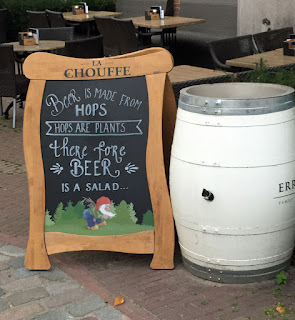 LA
CHOUFFE
BEER IS MADE FROM
HOPS
HOPS ARE PLANTS
there fore
BEER
IS A SALAD...